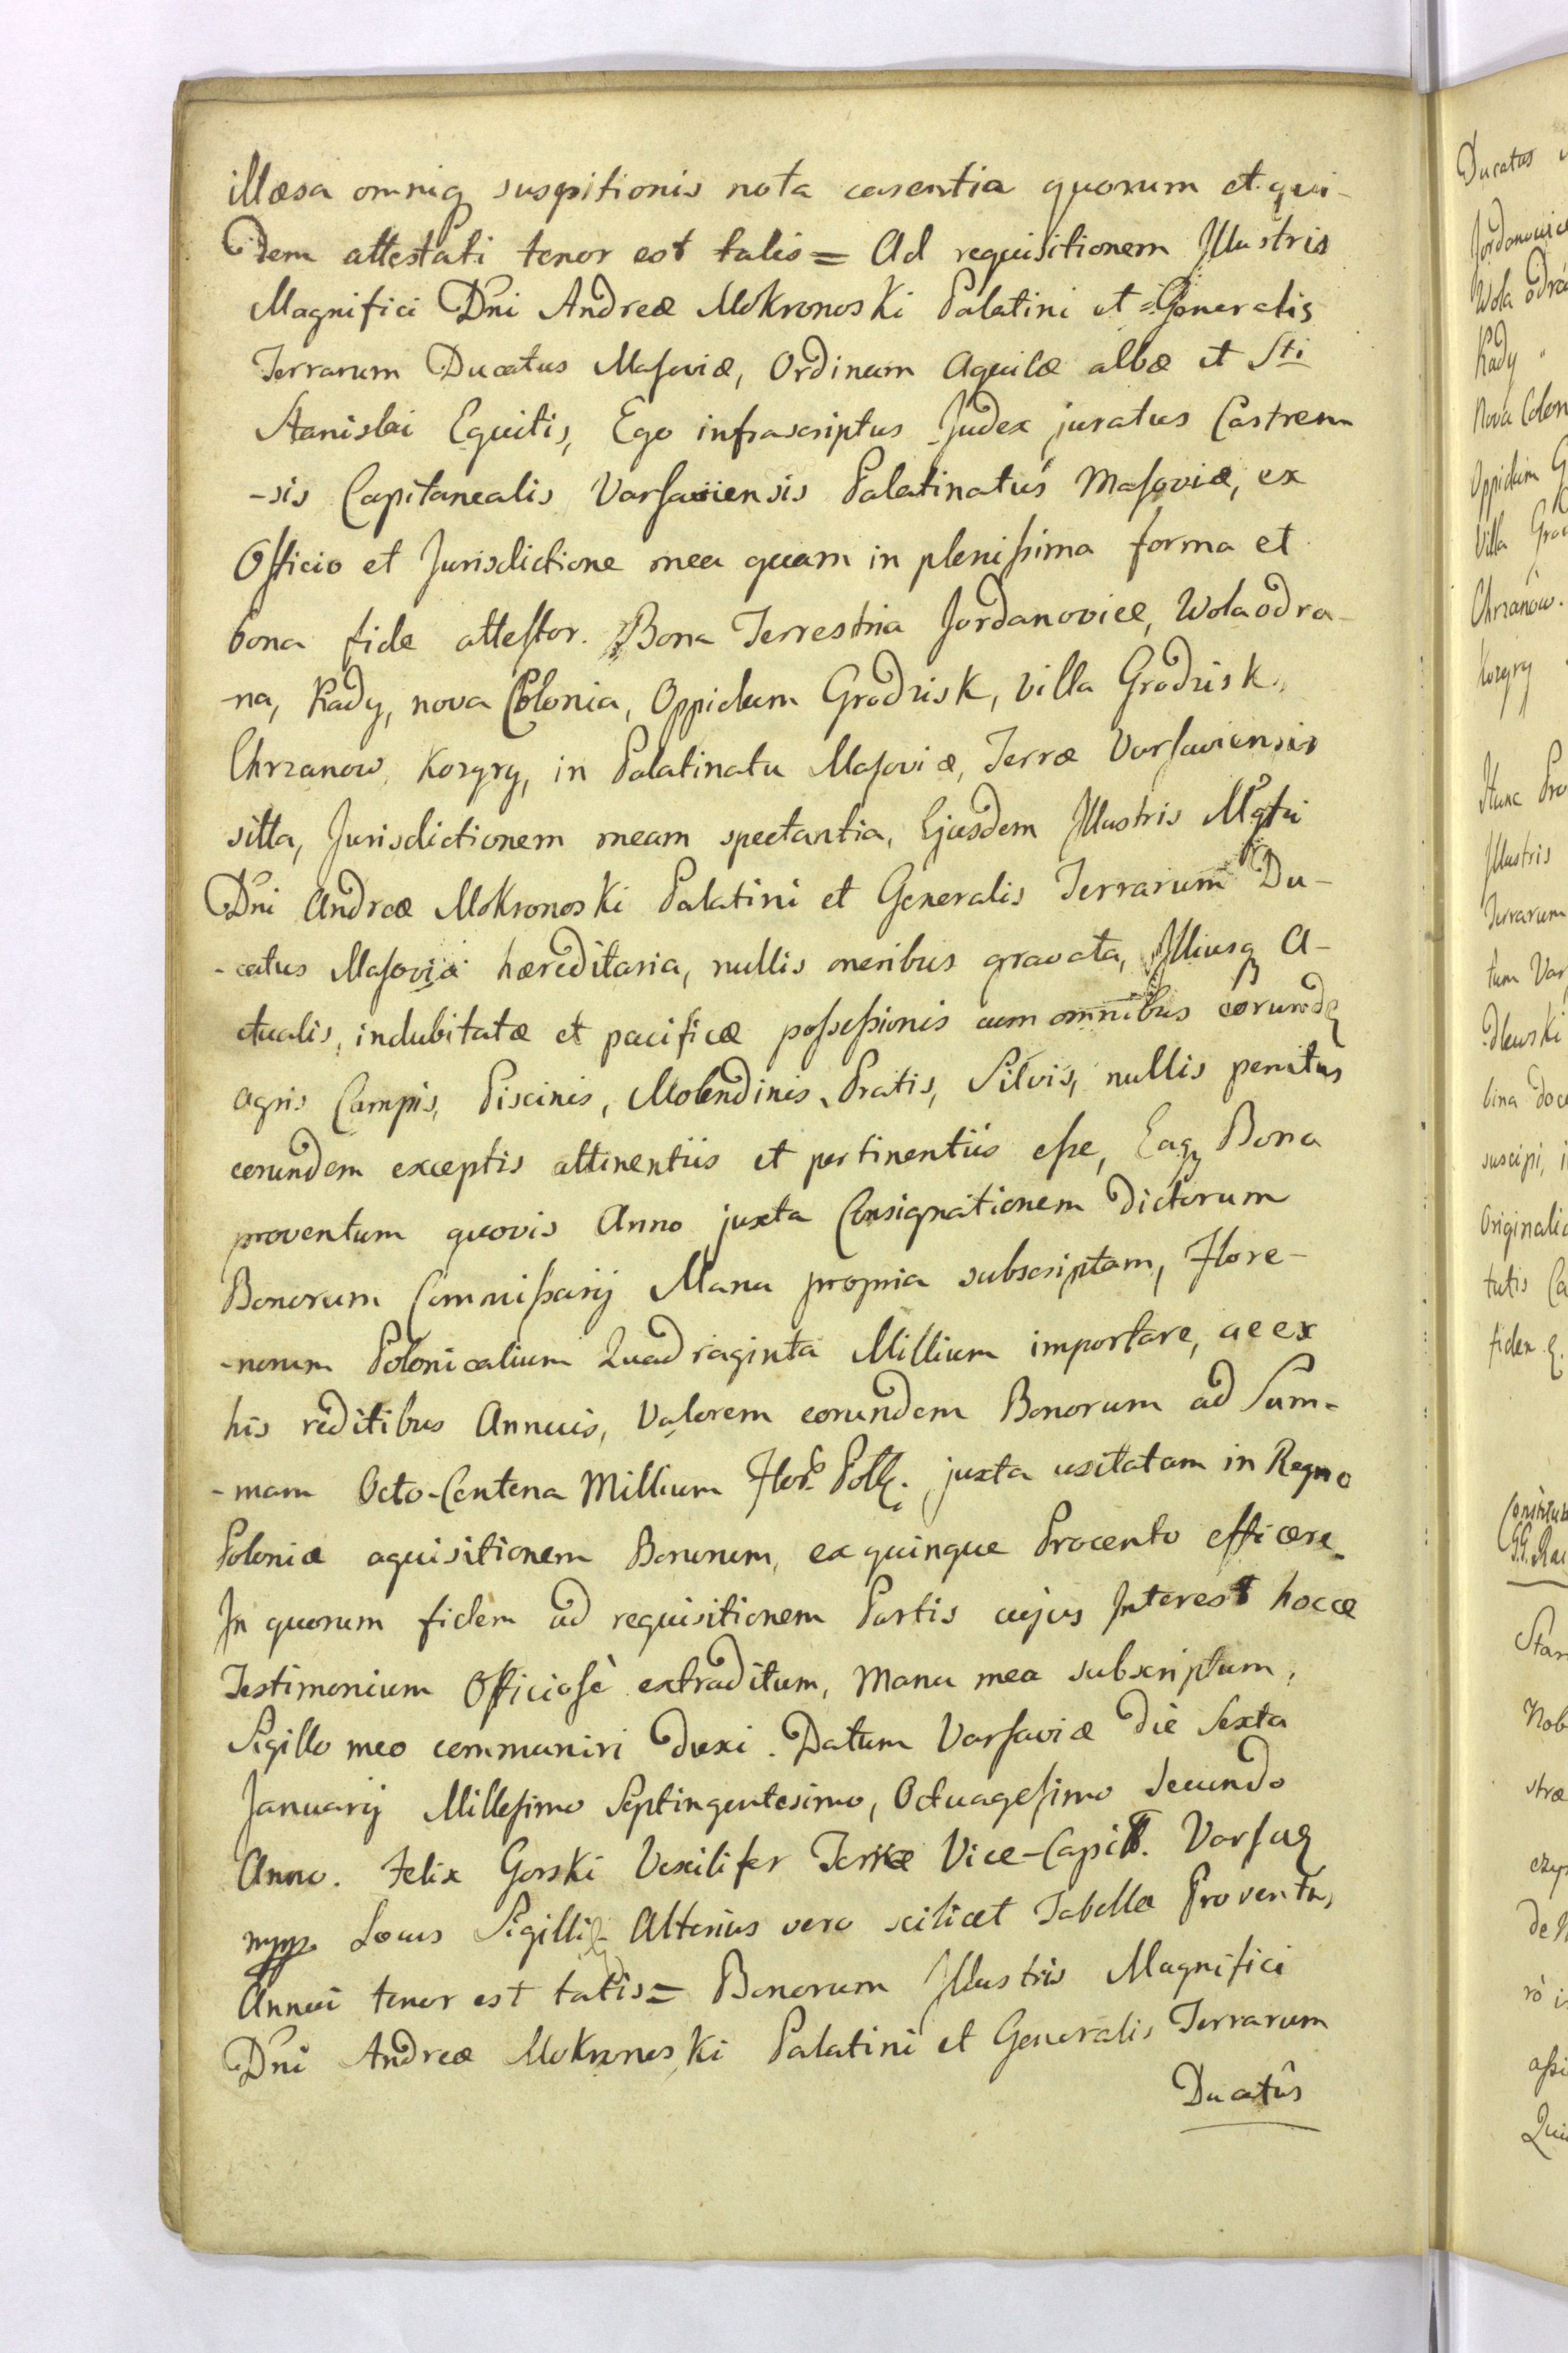 illæsa omniq suspitionis nota carentia quorum et qui-
dem attestati tenor est talis = Ad requisitionem Illustris
Magnifici Dni Andreæ Mokronoski Palatini et Generalis
Terrarum Ducatus Masoviæ, Ordinum Aquilæ albæ et Sti
Stanislai Equitis, Ego infrascriptus Judex juratus Castren-
-sis Capitanealis Varsaviensis Palatinatus Masoviæ, ex
Officio et Jurisdictione mea quam in plenissima forma et
bona fide attestor. Bona Terrestria Jordanovice, Wola odra-
-na, Kady, nova Colonia, Oppidum Grodzisk, Villa Grodzisk,
Chrzanow, Kozyry, in Palatinatu Masoviæ, Terræ Varsaviensis
sitta, Jurisdictionem meam spectantia, Ejusdem Illustris Mgfci
Dni Andreæ Mokronoski Palatini et Generalis Terrarum Du-
-catus Masoviæ hæreditaria, nullis oneribus gravata, Illiusq A-
ctualis, indubitatæ et pacificæ possessionis cum omnibus eorundq
agris Campis, Piscinis, Molendinis, Pratis, Silvis, nullis penitus
eorundem exceptis attinentiis et pertinentiis esse, Eaq Bona
proventum quovis Anno juxta Consignationem Dictorum
Bonorum Commissarij Manu propria subscriptam, Flore-
-norum Polonicalium Quadraginta Millium importare, ac ex
his reditibus Annuis, Valorem eorundem Bonorum ad Sum-
-mam Octo-Centena Millium Flor. Poll. juxta usitatam in Regno
Poloniæ aquisitionem Bonorum, ex quinque Procento efficere.
In quorum fidem ad requisitionem Partis cujus Interest hocce
Testimonium Officiosè extraditum, Manu mea subscriptum,
Sigillo meo communiri duxi. Datum Varsaviæ Die Sexta
Januarij Millesimo Septingentesimo, Octuagesimo Secundo
Anno. Felix Gorski Vexilifer Terræ Vice-Capitt. Varsaq
mpp Locus Sigilli. Alterius vero scilicet Tabella Proventus
Annui tenor est talis = Bonorum Illustris Magnifici
Dni Andreæ Mokronoski Palatini et Generalis Terrarum
Ducatûs
Ducatus
Jordanovice
Wola odra
Kady "
Nova Colon
Oppidum G
Villa Gro
Chrzanów.
Kozyry
Hunc Pro
Illustris
Terrarum
tum Var
dlewski
bina doc
suscipi, i
Originali
tutis Ca
fidem
Star
Nob
stræ
de
rò i
assi
Qui